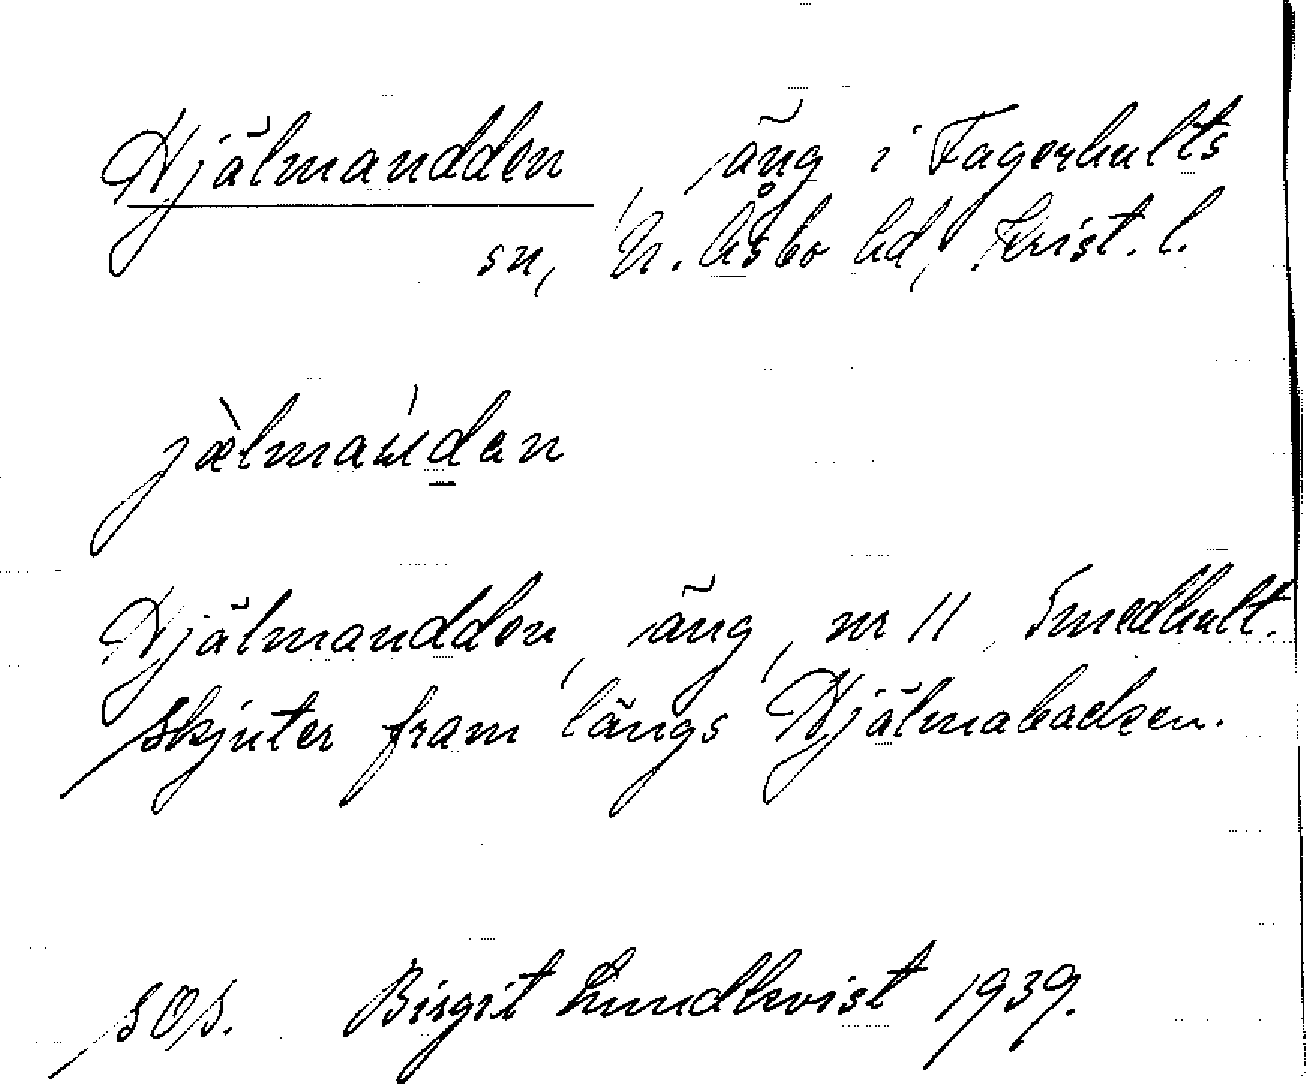 Hjälmandden, äng i Fagerhults
sn, N. Åsbo hd, Krist. l.
Hjälmandden, äng, nr 11, Smedhult.
Skjuter fram längs Hjälmabacken.
SOS. Birgit Lundkvist 1939.